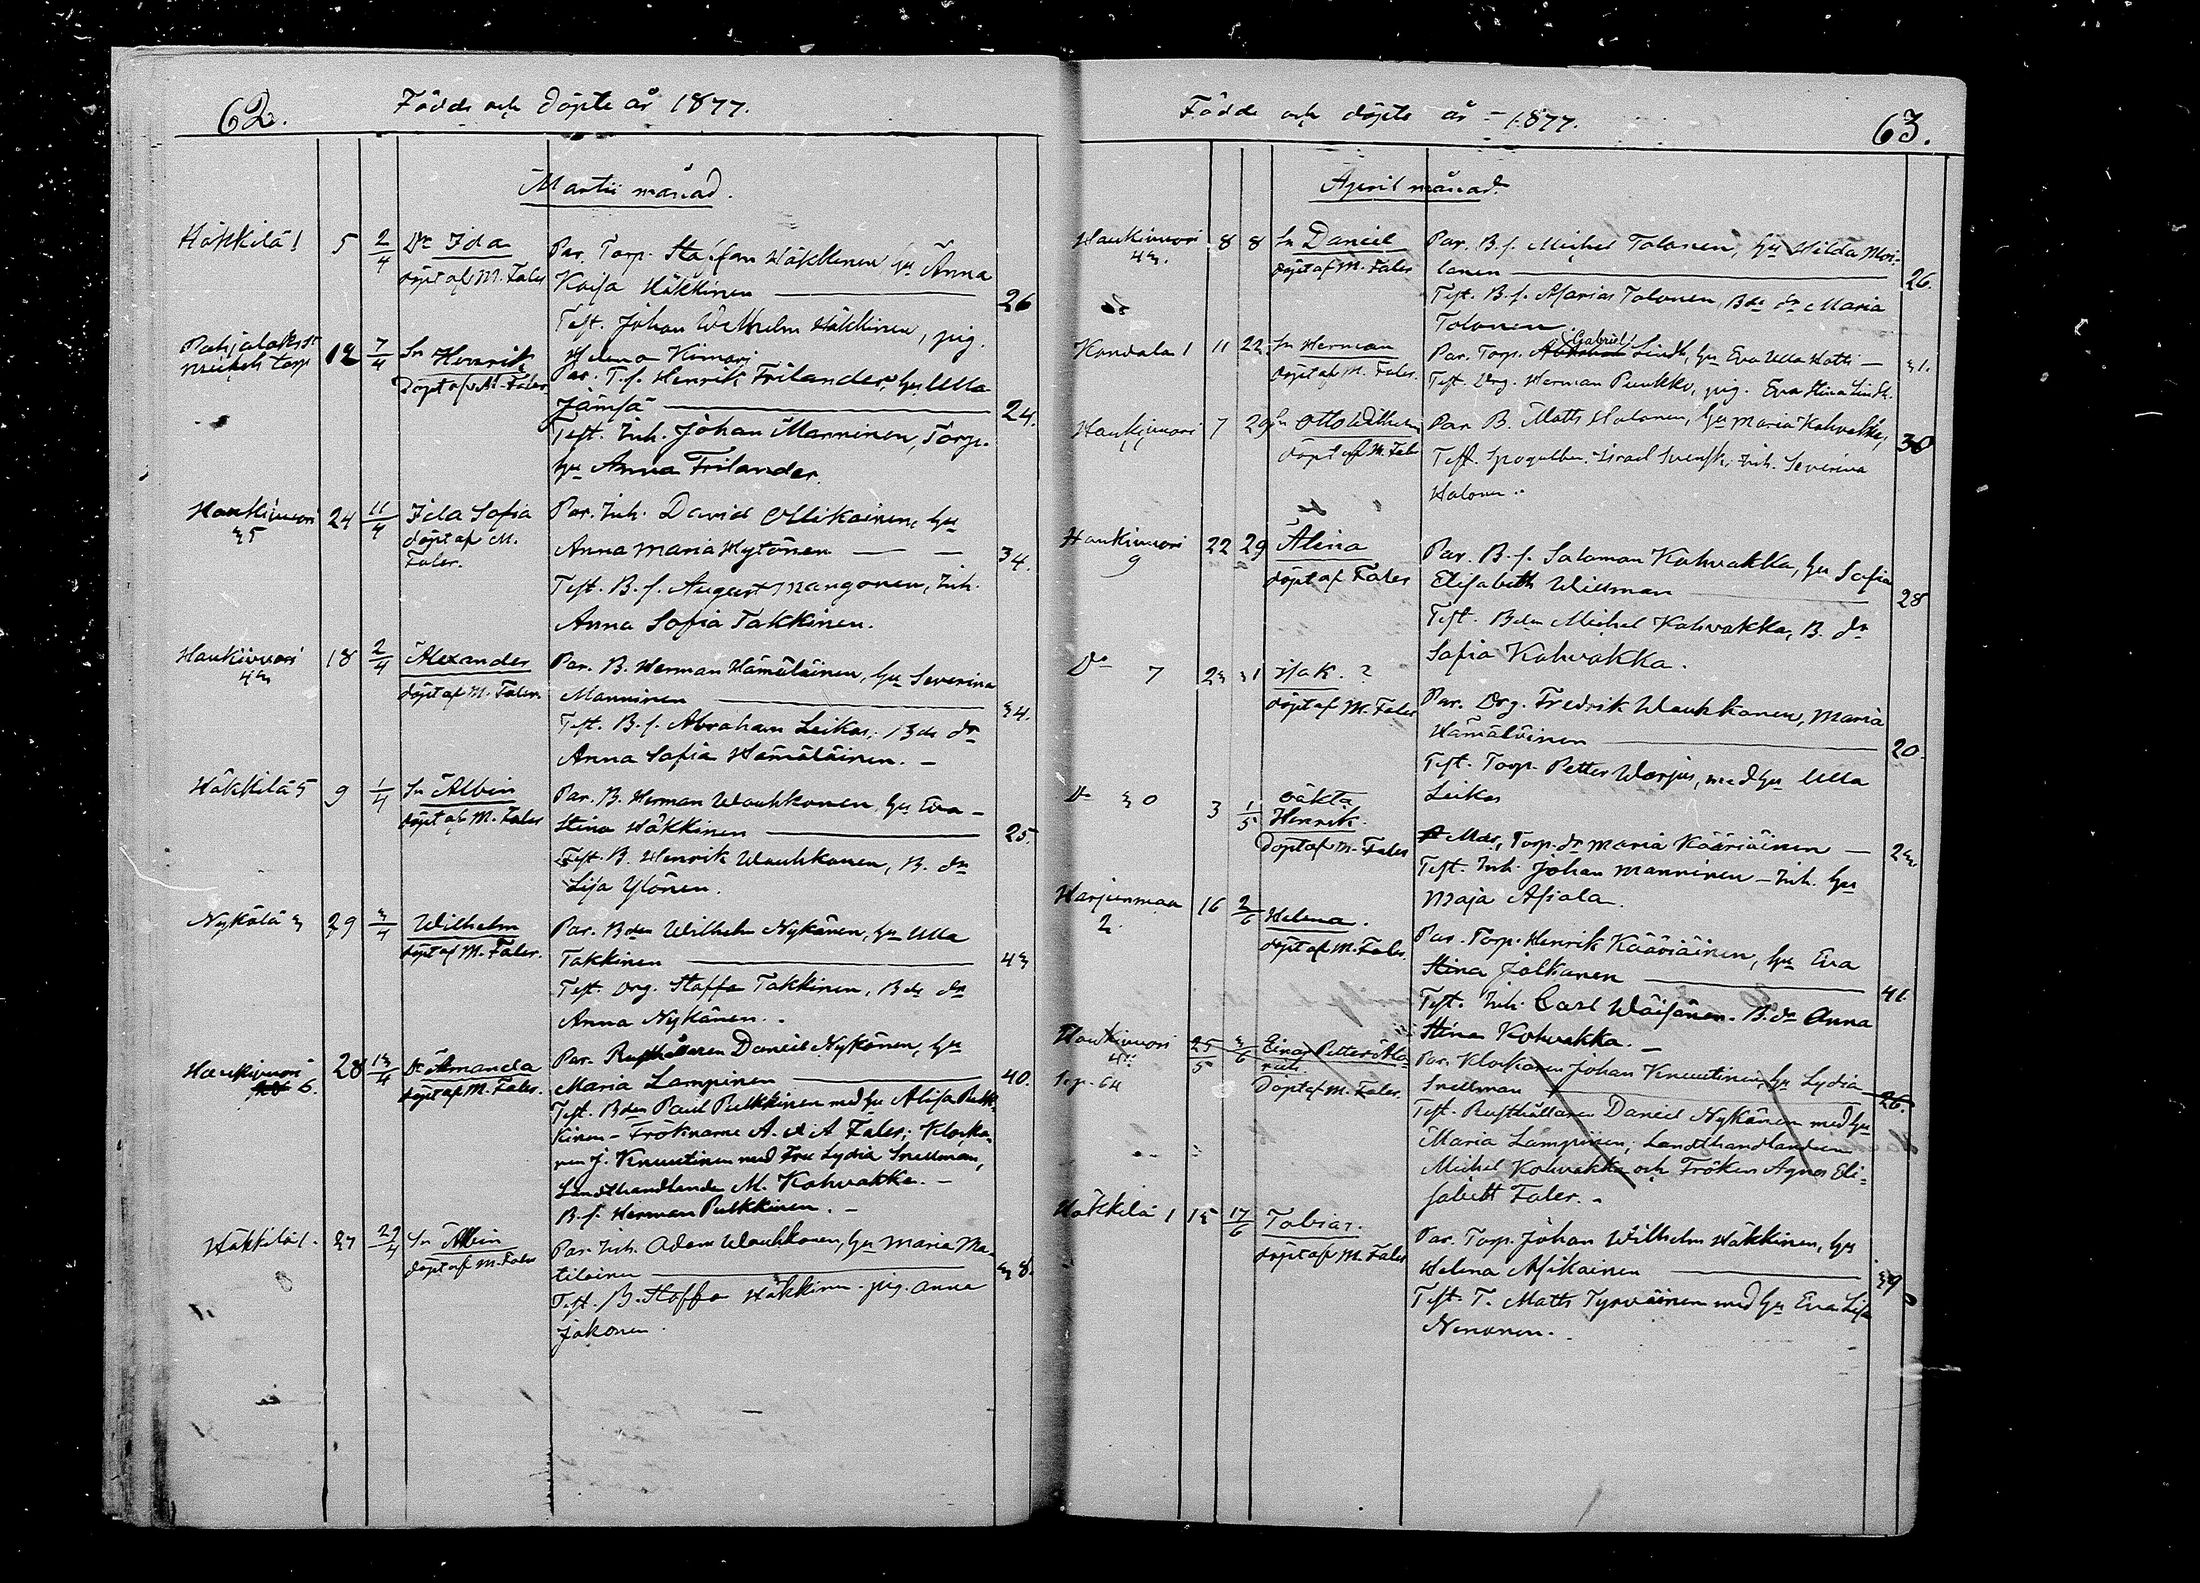 62.
Födde och döpte år 1877.
Martii månad.
Häkkilä 1
5
2/4
Dr Ida
döpt af M. Faler
Par. Torp. Staffan Häkkinen hu Anna
Kaisa Häkkinen —
26
Test. Johan Wilhelm Häkkinen, pig.
Helena
12
7/4
Sn Henrik
Döpt af M. Faler
Par. T.f. Henrik Frilander hu Ulla
Jämsä —
24.
Test. Inh. Johan Manninen, Torp.
hu Anna Frilander.
Haukivuori
35
24
11/4
Ida Sofia
döpt af M.
Faler.
Par. Inh. David Ollikainen, hu
Anna Maria Hytönen — —
34.
Test. B.f. August Mangonen, Inh.
Anna Sofia Takkinen.
Haukivuori
43
18
2/4
Alexander
döpt af M. Faler.
Par. B. Herman Hämäläinen, hu Severina
Manninen —
34.
Test. B.f. Abraham Leikas, Bde dr
Anna Sofia Hämäläinen. –
Häkkilä 5
9
1/4
Sn Albin
döpt af M. Faler
Par. B. Herman Wauhkonen, hu Eva –
Stina Häkkinen —
25.
Test. B. Henrik Wauhkonen, B. dr
Lisa Ylönen.
Nykälä 3
29
3/4
Wilhelm
döpt af M. Faler.
Par. Bden Wilhelm Nykänen, hu Ulla
Takkinen —
43
Test. Drg. Staffa Takkinen, Bde dr
Anna Nykänen. .
Haukivuori
6.
28
13/4
Dr Amanda
döpt af M. Faler.
Par. Rusthållaren Daniel Nykänen, hu
Maria Lampinen —
40.
Test. Bden Paul Pulkkinen med hu Alisa Pulk-
kinen – Fröknarne A. & A Faler; Klocka-
ren J. Knuutinen med Fru Lydia Snellman,
Landthandlanden M. Kahvakka. –
B.f. Herman Pulkkinen. –
Häkkilä 1.
37
29/4
Sn Albin
döpt af M. Faler
Par. Inh. Adam Wauhkonen, hu Maria Ma-
tilainen —
38.
Test. B. Staffa Häkkinen – pig. Anna
Jokonen.
Födde och döpte år – 1877.
63.
April månad.
Haukivuori
43.
8
8
Sn Daniel
döpt af M. Faler
Par. B.f. Michel Tolonen, hu Hilda Moi-
lanen —
26.
Test. B.f. Asarias Tolonen, Bde dr Maria
Tolonen
Kandala 1
11
22.
Sn Herman
döpt af M. Faler.
Gabriel
Par. Torp. Abraham Lindh, hu Eva Ulla Hatti —
31.
Test. Drg. Herman Puukko, pig. Eva Stina Lindh.
Haukivuori
7
29
Sn Otto Wilhelm
döpt af M. Faler
Par. B. Matts Halonen, hu Maria Kahvakka,
30
Test. Israel Svensk, Inh. Severina
Halonen.
Haukivuori
9
22
29
Alina
döpt af Faler
Par. B.f. Salomon Kahvakka, hu Sofia
Elisabeth Willman —
28
Test. Bden Michel Kahvakka, B. dr
Sofia Kahvakka.
Do 7
23
31
Isak. ?
döpt af M. Faler
Par. Drg. Fredrik Wauhkonen, Maria
Hämäläinen —
20.
Test. Torp. Petter Warjus, med hu Ulla
Leikas
Do 30
3
1/5
oäkta
Henrik.
Döpt af M. Faler
Mod., Torp. dr Maria Kääriäinen —
23
Test. Inh. Johan Manninen – Inh. hu
Maja Asiala.
Harjunmaa
2.
16
2/6
Helena.
döpt af M. Faler.
Par. Torp. Henrik Kääriäinen, hu Eva
Stina Jolkanen —
41.
Test. Inh. Carl Wäisänen. B. dr Anna
Stina Kahvakka. –
Haukivuori
Pag. 64
25/5
3/6
Einar Petter Ala-
rik.
Döpt af M. Faler.
Par. Klockaren Johan Knuutinen, hu Lydia
Snellman —
26.
Test. Rusthållaren Daniel Nykänen med hu
Maria Lampinen; Landthandlanden
Michel Kahvakka och Fröken Agnes Eli-
sabeth Faler. –
Häkkilä 1
15
17/6
Tobias.
döpt af M. Faler
Par. Torp. Johan Wilhelm Häkkinen, hu
Helena Asikainen —
39
Test. T. Matts Tyrväinen med hu Eva Lisa
Nenonen. .